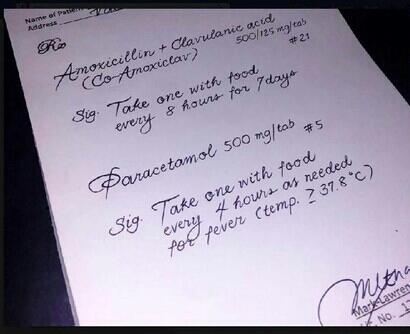 Name of Patient
Address
Rx
Amoxicillin + Clavulanic acid
(Co-Amoxiclav) 500/125 mg/tab
#21
Sig. Take one with food
every 8 hours for 7days
Paracetamol 500 mg/tab #5
Sig. Take one with food
every 4 hours as needed
for fever (temp. ≥ 37.8°C)
Mark Lawren
No. 1